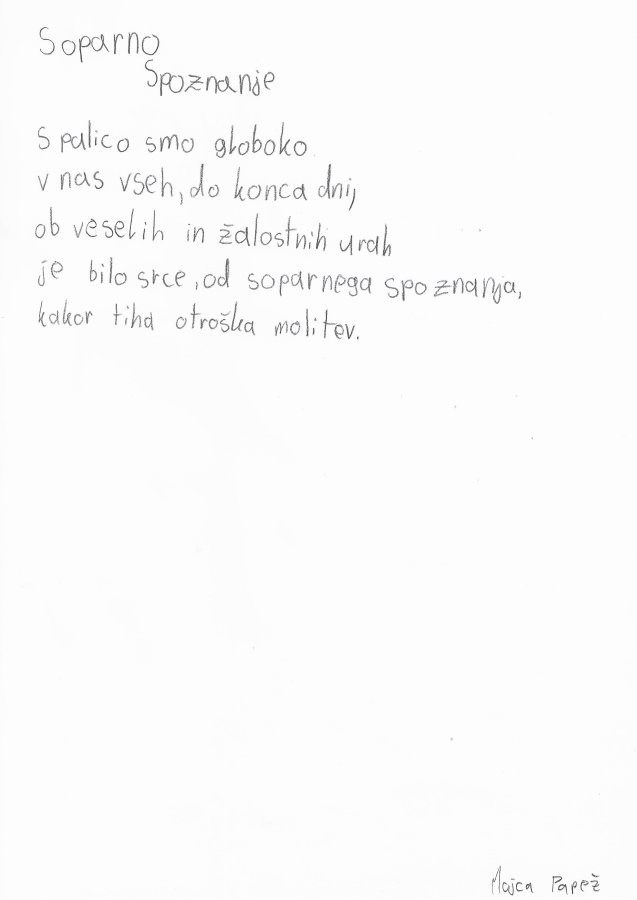 Soparno
Spoznanje
S palico smo globoko
v nas vseh, do konca dnij
ob veselih in žalostnih urah
je bilo srce, od soparnega spoznanja,
kakor tiha otroška molitev.
Majca Papež